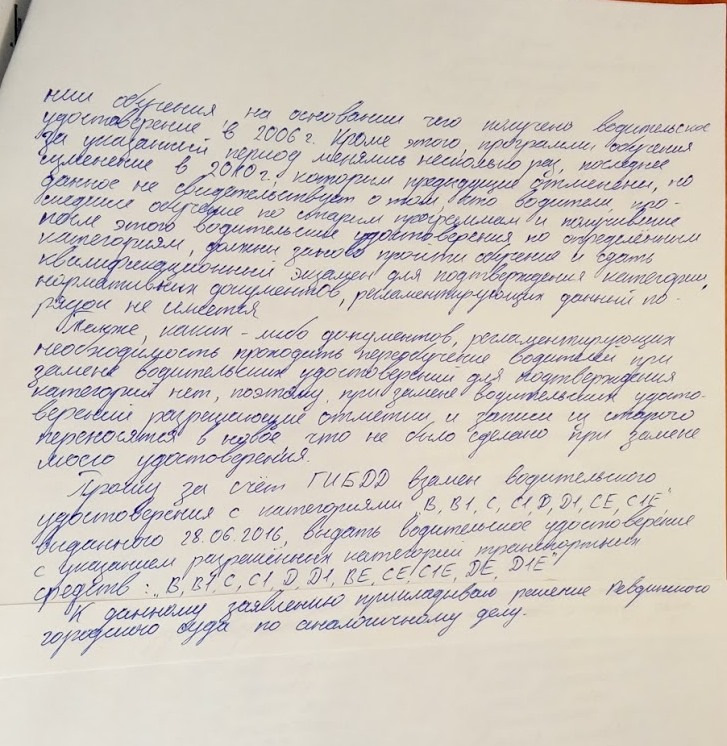 нии обучения, на основании чего получено водительское
удостоверение в 2006 г. Кроме этого, программы обучения
за указанный период менялись несколько раз, последнее
изменение в 2010 г., которым предыдущие отменены, но
данное не свидетельствует о том, что водители, про-
шедшие обучение по старым программам и получившие
после этого водительские удостоверения по определенным
категориям, должны заново пройти обучение и сдать
квалификационный экзамен для подтверждения категории,
нормативных документов, регламентирующих данный по-
рядок не имеется
Также, каких-либо документов, регламентирующих
необходимость проходить переобучение водителей при
замене водительских удостоверений для подтверждения
категорий нет, поэтому, при замене водительских удосто-
верений разрешающие отметки и записи из старого
переносятся в новое, что не было сделано при замене
моего удостоверения.
Прошу за счёт ГИБДД взамен водительского
удостоверения с категориями "B, B1, C, C1, D, D1, CE, C1E",
выданного 28.06.2016, выдать водительское удостоверение
с указанием разрешённых категорий транспортных
средств: "B, B1, C, C1, D, D1, BE, CE, C1E, DE, D1E"
К данному заявлению прикладываю решение Ревдинского
городского суда по аналогичному делу.